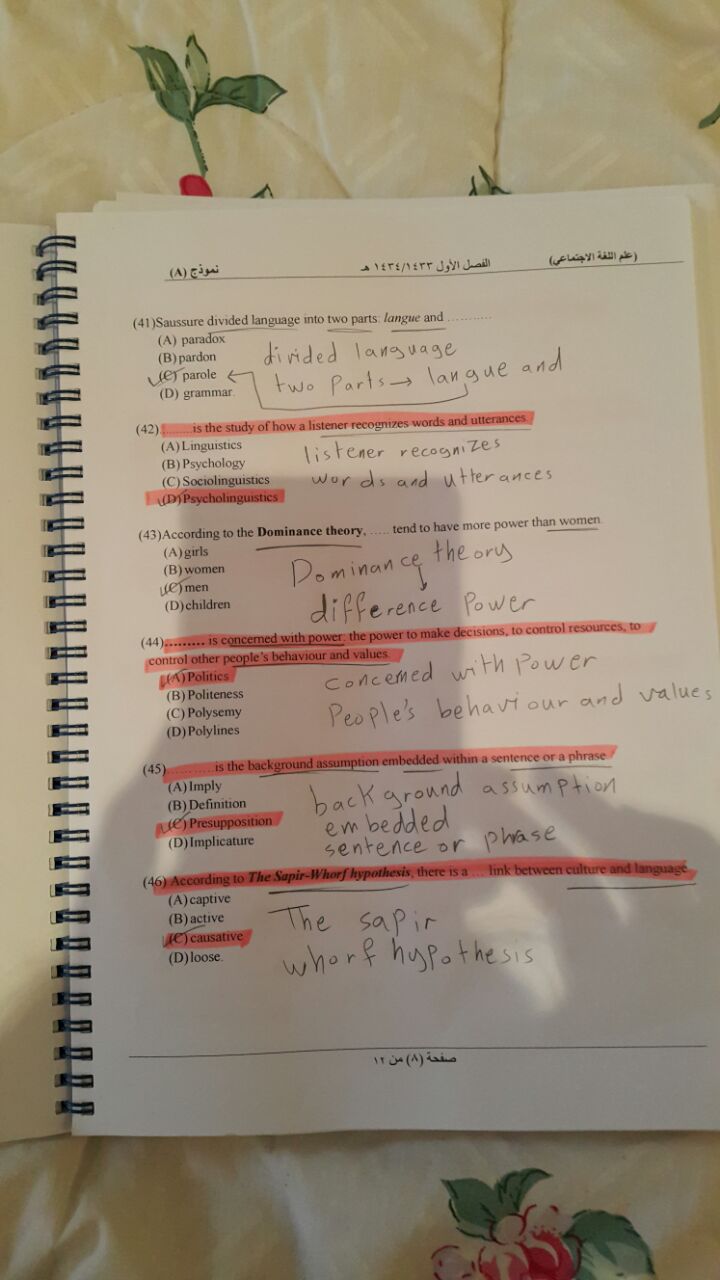 (علم اللغة الاجتماعي) الفصل الأول ١٤٣٤/١٤٣٣ هـ نموذج (A)
(41)Saussure divided language into two parts: langue and ...........
(A) paradox
(B) pardon
divided language
(C) parole
two parts → langue and
(D) grammar.
(42).........is the study of how a listener recognizes words and utterances.
(A) Linguistics
listener recognizes
(B) Psychology
(C) Sociolinguistics
words and utterances
(D) Psycholinguistics
(43)According to the Dominance theory, ..... tend to have more power than women.
(A) girls
Dominance theory
(B) women
(C) men
(D) children
difference Power
(44)......... is concerned with power: the power to make decisions, to control resources, to
control other people's behaviour and values.
(A) Politics
concerned with Power
(B) Politeness
(C) Polysemy
People's behaviour and values
(D) Polylines
(45)............ is the background assumption embedded within a sentence or a phrase
(A) Imply
background assumption
(B) Definition
(C) Presupposition
embedded
(D) Implicature
sentence or phrase
(46) According to The Sapir-Whorf hypothesis, there is a ... link between culture and language
(A) captive
(B) active
The sapir
(C) causative
(D) loose.
whorf hypothesis
صفحة (٨) من ١٢